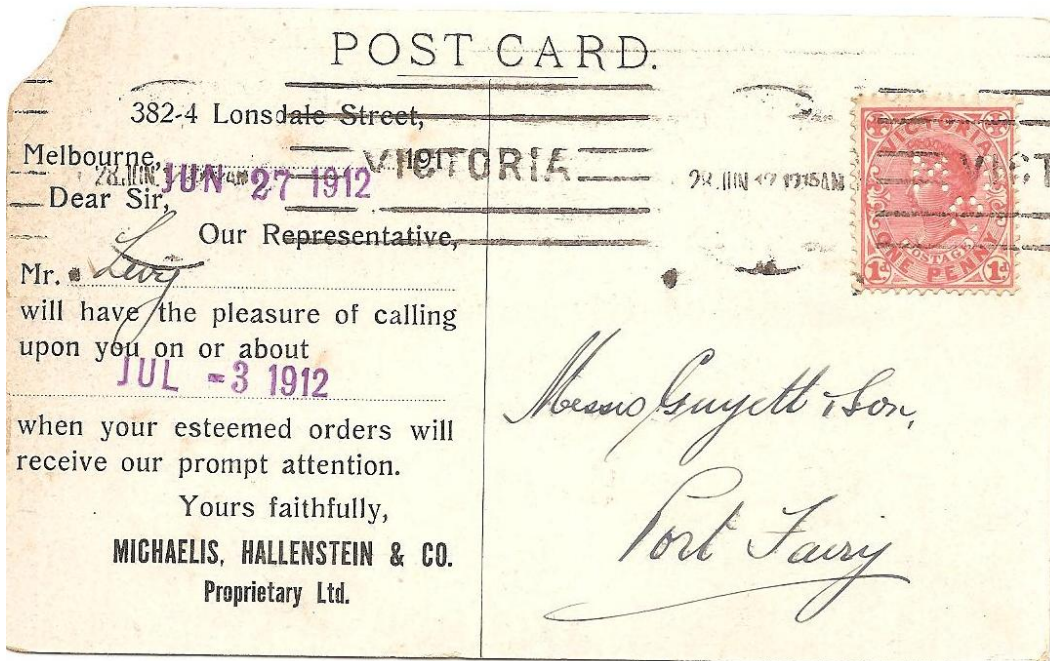 POST CARD.
382-4 Lonsdale Street,
Melbourne, 191
JUN 27 1912
Dear Sir,
Our Representative,
Mr. Levy
will have the pleasure of calling
upon you on or about
JUL -3 1912
when your esteemed orders will
receive our prompt attention.
Yours faithfully,
MICHAELIS, HALLENSTEIN & CO.
Proprietary Ltd.
VICTORIA
28 JUN 12
VICTORIA
POSTAGE
ONE PENNY
1d 1d
VICT
Messrs Guyett & Son,
Port Fairy